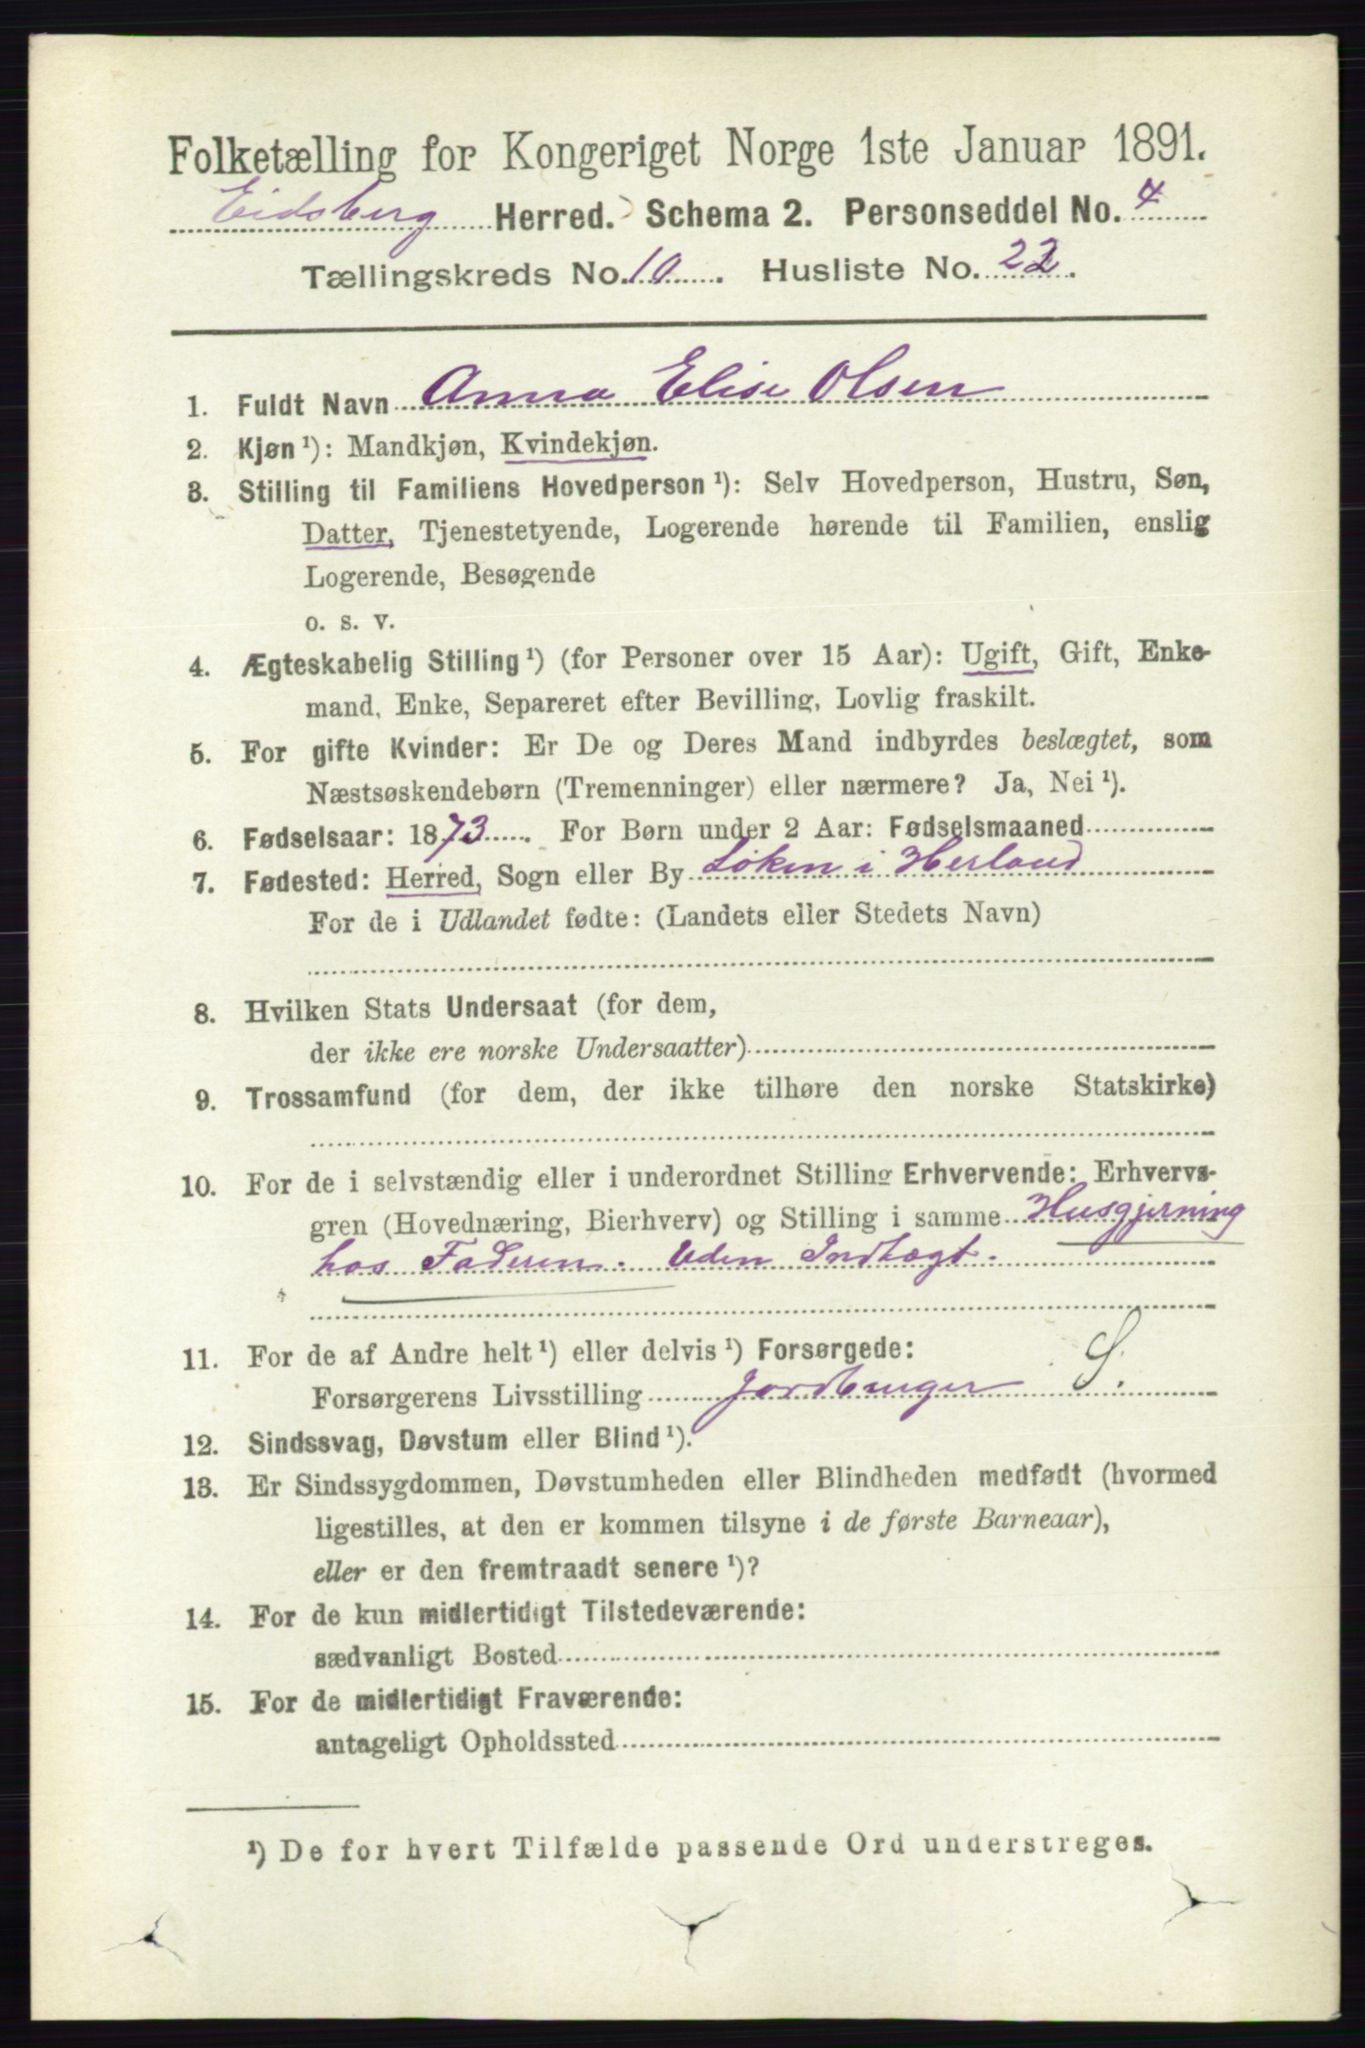 Folketælling for Kongeriget Norge 1ste Januar 1891.
Eidsberg Herred. Schema 2. Personseddel No. 4
Tællingskreds No. 10. Husliste No. 22.
1. Fuldt Navn Anna Elise Olsen
2. Kjøn ¹): Mandkjøn, Kvindekjøn.
3. Stilling til Familiens Hovedperson ¹): Selv Hovedperson, Hustru, Søn,
Datter, Tjenestetyende, Logerende hørende til Familien, enslig
Logerende, Besøgende
o. s. v.
4. Ægteskabelig Stilling ¹) (for Personer over 15 Aar): Ugift, Gift, Enke-
mand, Enke, Separeret efter Bevilling, Lovlig fraskilt.
5. For gifte Kvinder: Er De og Deres Mand indbyrdes beslægtet, som
Næstsøskendebørn (Tremenninger) eller nærmere? Ja, Nei ¹).
6. Fødselsaar: 1873. For Børn under 2 Aar: Fødselsmaaned
7. Fødested: Herred, Sogn eller By Löken i Herland
For de i Udlandet fødte: (Landets eller Stedets Navn)
8. Hvilken Stats Undersaat (for dem,
der ikke ere norske Undersaatter)
9. Trossamfund (for dem, der ikke tilhøre den norske Statskirke)
10. For de i selvstændig eller i underordnet Stilling Erhvervende: Erhvervs-
gren (Hovednæring, Bierhverv) og Stilling i samme Husgjerning
hos Faderen. Uden Indtægt.
11. For de af Andre helt ¹) eller delvis ¹) Forsørgede:
Forsørgerens Livsstilling Jordbruger S.
12. Sindssvag, Døvstum eller Blind ¹).
13. Er Sindssygdommen, Døvstumheden eller Blindheden medfødt (hvormed
ligestilles, at den er kommen tilsyne i de første Barneaar),
eller er den fremtraadt senere ¹)?
14. For de kun midlertidigt Tilstedeværende:
sædvanligt Bosted
15. For de midlertidigt Fraværende:
antageligt Opholdssted
¹) De for hvert Tilfælde passende Ord understreges.